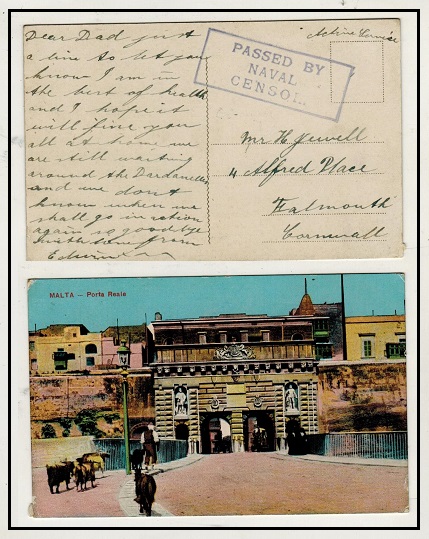 Dear Dad just
a line to let you
know I am in
the best of health
and I hope it
will find you
all at home we
are still waiting
around the Dardanelles
and we dont
know when we
shall go in action
again so goodbye
with love from
Edwin
PASSED BY
NAVAL
CENSO
Active Service
Mr H Jewell
4 Alfred Place
Falmouth
Cornwall
MALTA — Porta Reale